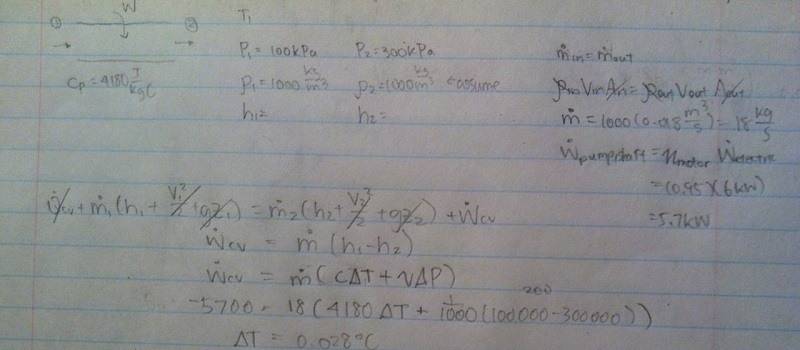 W
① ②
T₁
P₁ = 100kPa P₂ = 300kPa
Cp = 4180 J/kg°C
ρ₁ = 1000 kg/m³ ρ₂ = 1000 kg/m³ ← assume
h₁ = h₂ =
ṁin = ṁout
ρin Vin Ain = ρout Vout Aout
ṁ = 1000 (0.018 m³/s) = 18 kg/s
Ẇpumpshaft = ηmotor Ẇelectric
= (0.95)(6kW)
= 5.7kW
Q̇cv + ṁ₁ (h₁ + V₁²/2 + gz₁) = ṁ₂ (h₂ + V₂²/2 + gz₂) + Ẇcv
Ẇcv = ṁ (h₁ - h₂)
Ẇcv = ṁ (cΔT + vΔP)
200
-5700 = 18 (4180 ΔT + 1/1000 (100,000 - 300000))
ΔT = 0.028°C